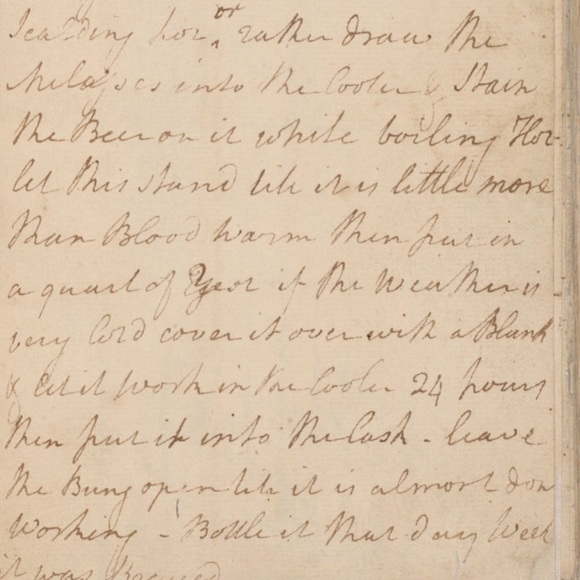 Scalding hot, or rather draw the
Melasses into the Cooler & Stain
the Beer on it while boiling Hot
let this stand till it is little more
than Blood warm then put in
a quart of Yest if the Weather is
very Cold cover it over with a Blank
& let it Work in the Cooler 24 hours
then put it into the Cask - leave
the Bung open till it is almost don
Working - Bottle it that day Week
it was Brewed